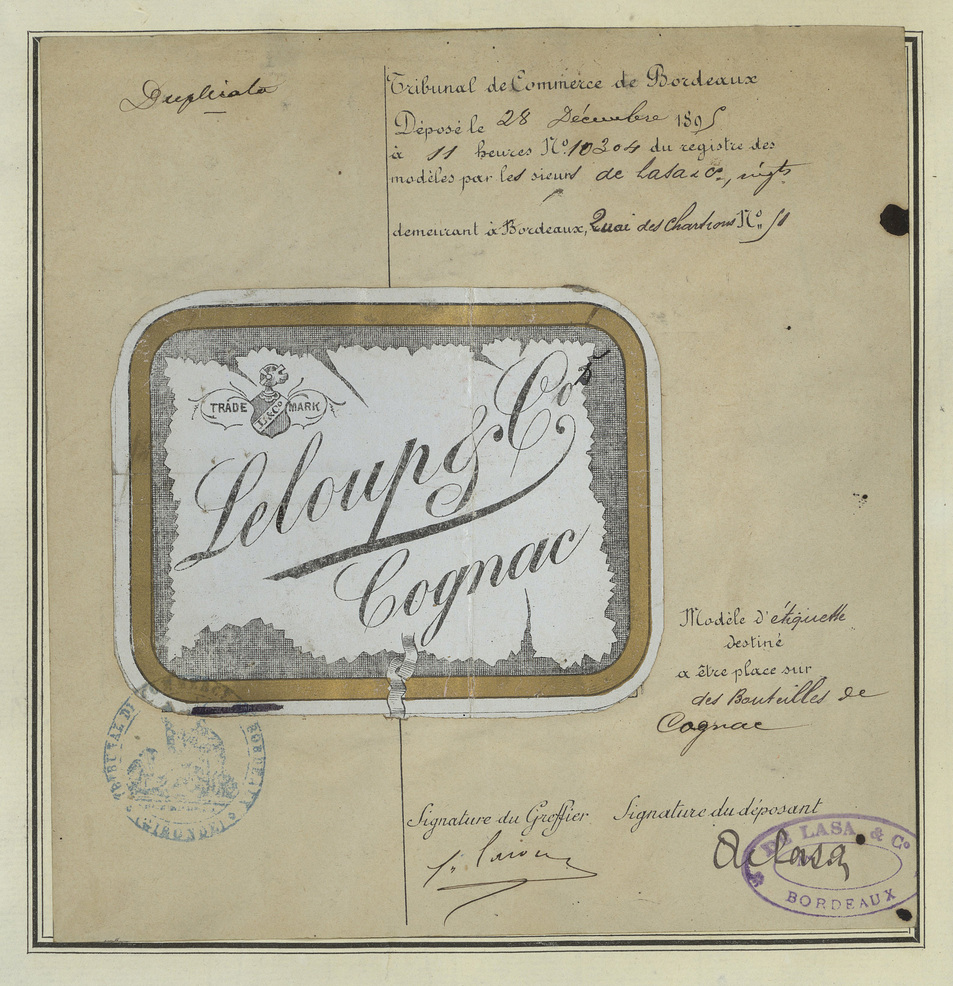 Duplicata
Tribunal de Commerce de Bordeaux
Déposé le 28 Décembre 1895
à 11 heures No. 10304 du registre des
modèles par les sieurs de Lasa & Co., négts
demeurant à Bordeaux, Quai des Chartrons No. 51
TRADE MARK
L. & Co
Leloup & Co
Cognac
Modèle d'étiquette
destiné
a être place sur
des Bouteilles de
Cognac
TRIBUNAL DE COMMERCE BORDEAUX
(GIRONDE)
Signature du Greffier Signature du déposant
de Lasa
DE LASA & Co
BORDEAUX